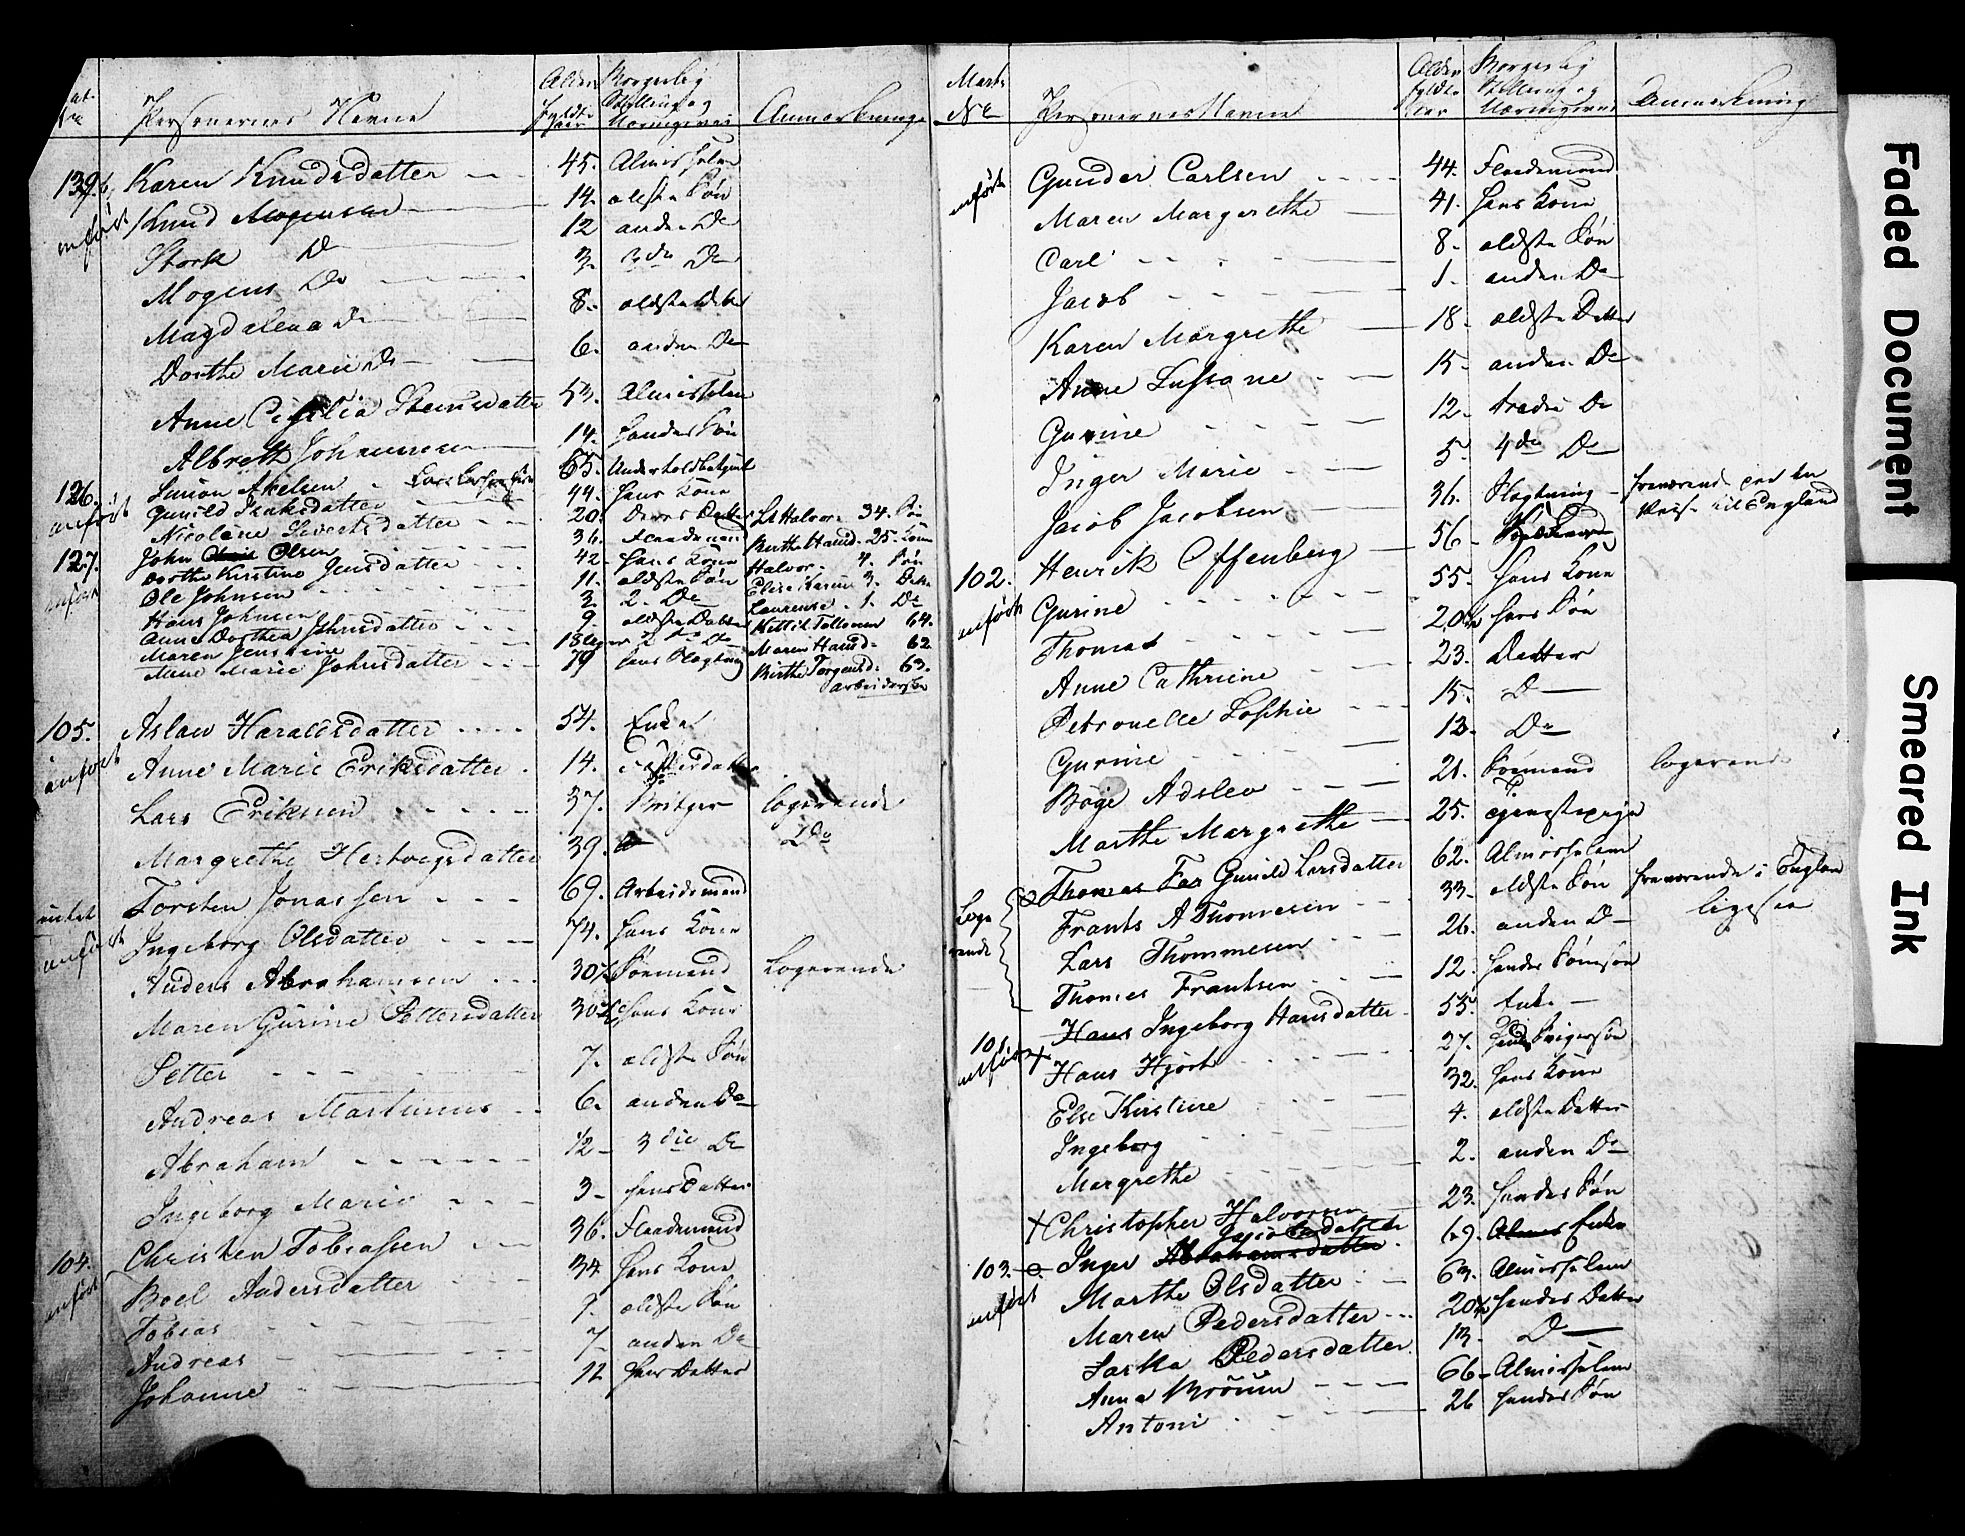 Personernes Navne Alder fyldte Aar Borgerlig Stilling og Næringsvei Anmærkninger
139. Karen Knudsdatter 45. Almisselem
anført Knud Mogensen 14. ældste Søn
Stork Do 12 anden Do
Mogens Do 3. 3die Do
Magdalena Do 8. ældste Datter
Dorthe Marie Do 6. anden Do
Anne Cecilia Steensdatter 53. Almisselem
Albreth Johannesen 14. hendes Søn
126. Simon Akelsen 65.
anført Gunild Isaksdatter 44. hans Kone
Nicolene Sivertsdatter 20. Deres Datter Halvor 34.
127. John Olsen 36. Floedemand Berthe Hansd. 25. Kone
anført Dorthe Kirstine Jensdatter 42. hans Kone Halvor 4. Søn
Ole Johnsen 11. ældste Søn Elise Karine 3. Datter
Hans Johnsen 3 2. Do Laurense 1. Do
Anne Dorthea Johnsdatter 9. ældste Datter Kittil Tollevsen 64.
Maren Jenstine Do Maren Hansd. 62
Anne Marie Johnsdatter 79 Berthe Torgensd. 63.
105. Aslaw Haraldsdatter 54. Enke
anført Anne Marie Eriksdatter 14. Fosterdatter
Lars Eriksen 37. logerende
Margrethe Hertvegsdatter 39. Do
Torsten Jonassen 69. Arbeidsmand
anført Ingeborg Olsdatter 74. hans Kone
Anders Abrahamsen 30 Søemand Logerende
Maren Gurine Pettersdatter 30 hans Kone
Petter 7. ældste Søn
Andreas Martinius 6. anden Do
Abraham 1/2 3die Do
Ingeborg Marie 3 hans Datter
104. Christen Tobiassen 36. Floedemand
anført Boel Andersdatter 34 hans Kone
Tobias 9. ældste Søn
Andreas 7 anden Do
Johanne 12 hans Datter
Matr No Personernes Navne Alder fyldte Aar Borgerlig Stilling og Næringsvei Anmærkning
anført Gunder Carlsen 44. Floedemand
Maren Margrethe 41. hans Kone
Carl 8. ældste Søn
Jacob 1. anden Do
Karen Margrethe 18. ældste Datter
Anne Sussane 15. anden Do
Gurine 12. tredie Do
Inger Marie 5. 4de Do
Jacob Jacobsen 36. Slægtning fraværende paa en Reise til England
102. Henrik Offenberg 56
anført Gurine 55. hans Kone
Thomas 20 hans Søn
Anne Cathrine 23. Datter
Petronelle Sophie 15. Do
Gurine 13. Do
Boye Adslev 21. Søemand logerende
Marthe Margrethe 25. tjenestepige
Loge Thomas Far Gunild Larsdatter 62. Almisselem
rende Frants A Thommesen 33. ældste Søn fraværende i England
Lars Thommesen 26. anden Do ligesaa
Thomes Frantsen 12. hendes Sønnesøn
Hans Ingeborg Hansdatter 55. Enke
101. anført Hans Hjort 27. hendes Svigersøn
Else Kirstine 32. hans Kone
Ingeborg 4. ældste Datter
Margrethe 2. anden Do
Christopher Halvorsen 23. hendes Søn
103. Inger Abrahamsdatter 69. Enke
anført Marthe Olsdatter 63. Almisselem
Maren Pedersdatter 20 hendes Datter
Pedersdatter 13. Do
Anna 66 Almisselem
Antoni 26 hendes Søn
Faded Document
Smeared Ink